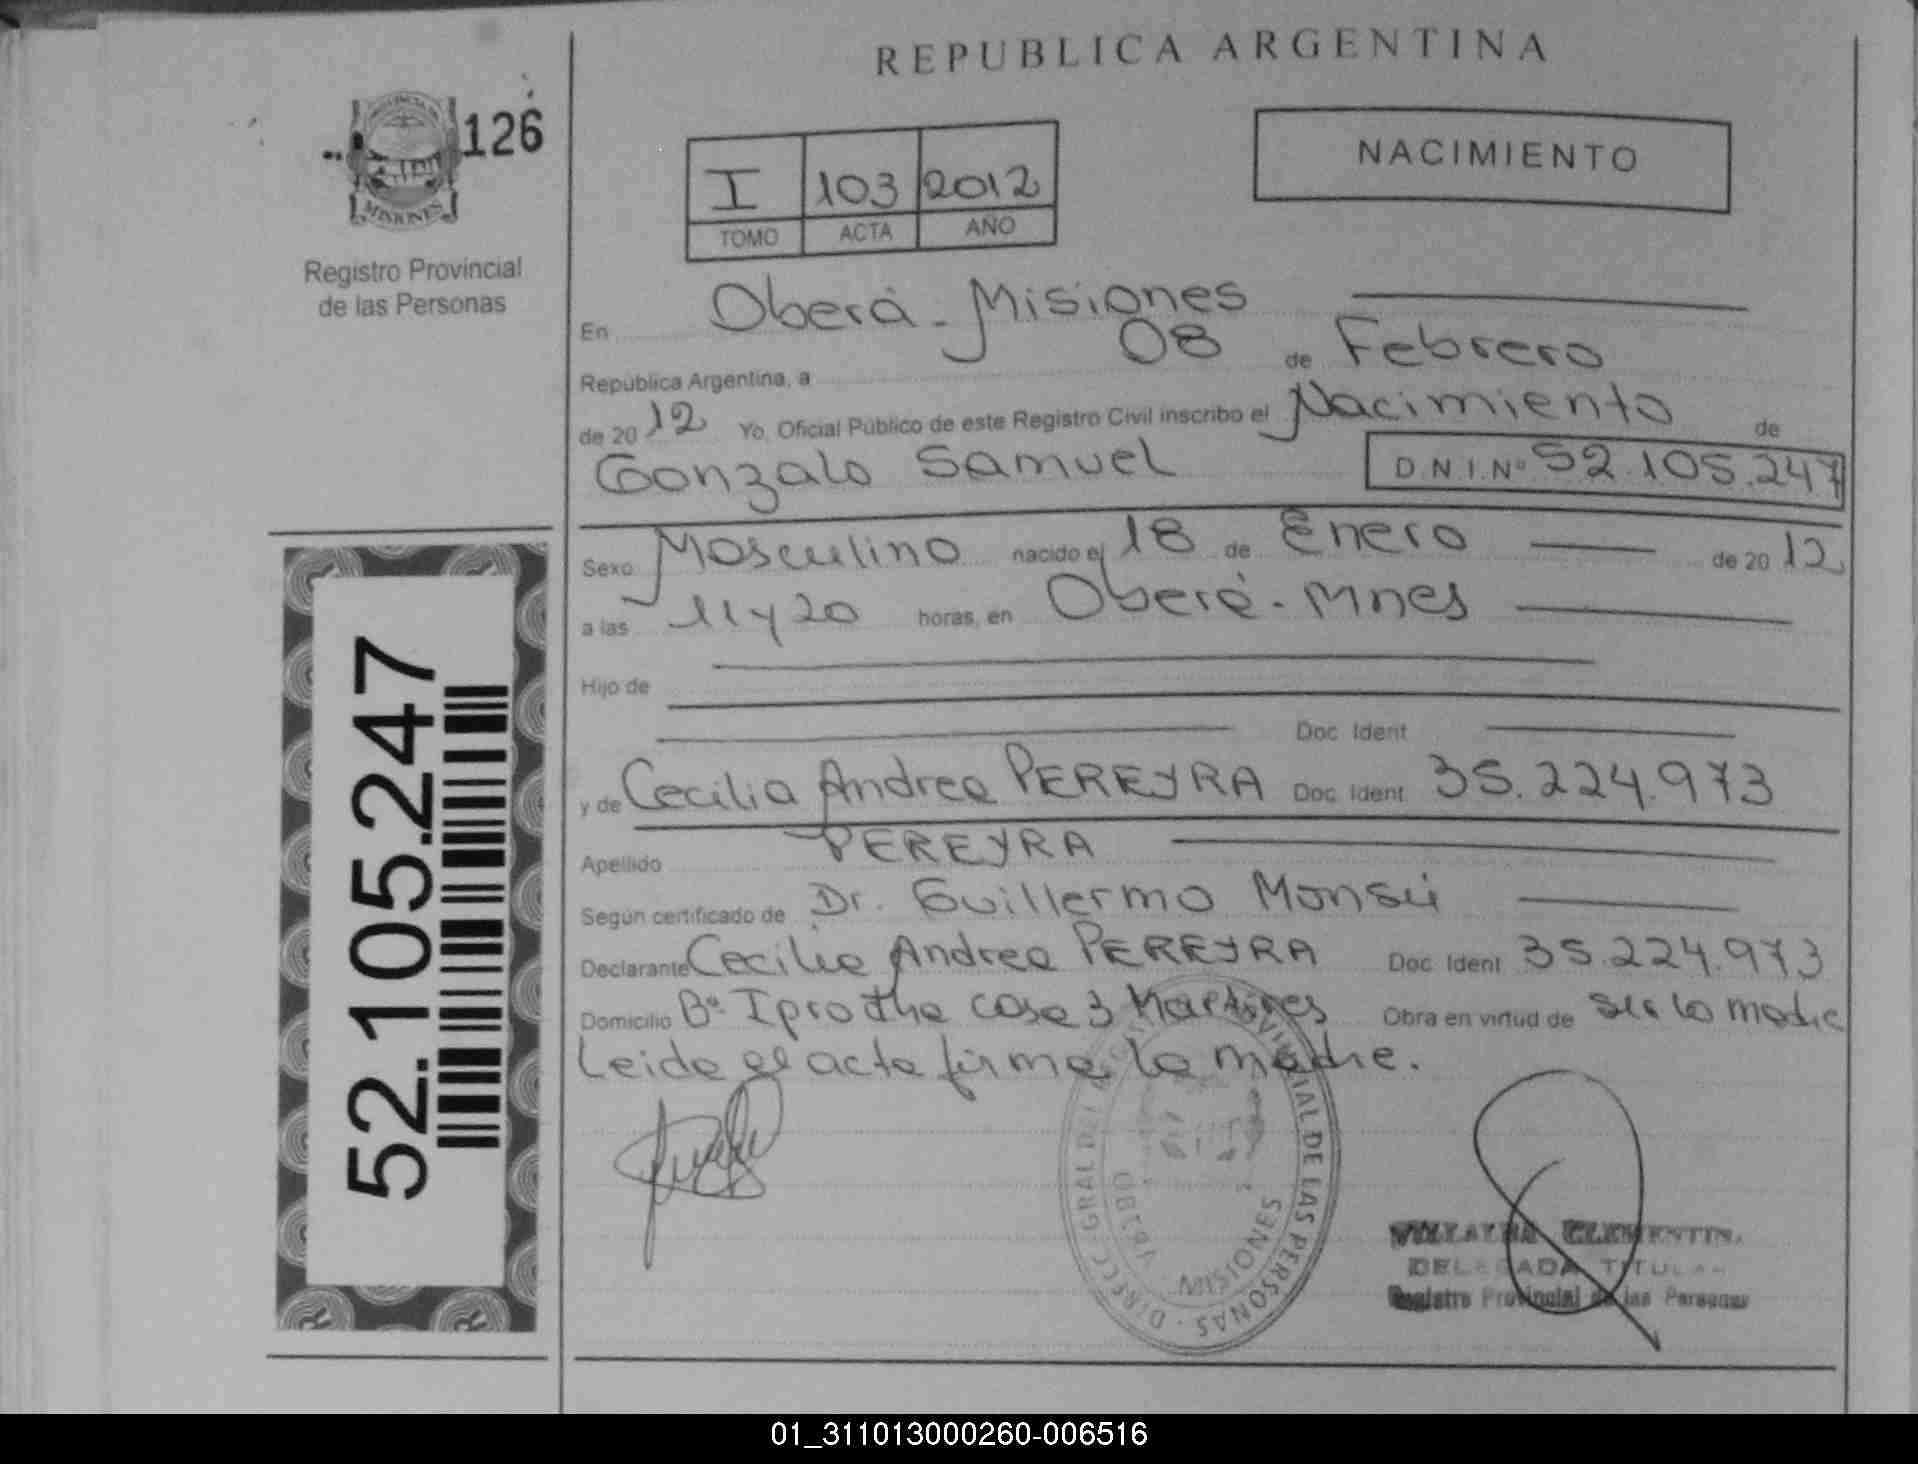 REPUBLICA ARGENTINA
126
MISIONES
Registro Provincial
de las Personas
I 103 2012
TOMO ACTA AÑO
NACIMIENTO
En Oberá - Misiones
República Argentina, a 08 de Febrero
de 2012 Yo, Oficial Público de este Registro Civil inscribo el Nacimiento de
Gonzalo Samuel D.N.I.Nº 52.105.247
Sexo Masculino nacido el 18 de Enero de 2012
a las 11 y 20 horas, en Oberá - Mnes
Hijo de
Doc Ident
y de Cecilia Andrea PEREYRA Doc Ident 35.224.973
Apellido PEREYRA
Según certificado de Dr. Guillermo Monsú
Declarante Cecilia Andrea PEREYRA Doc Ident 35.224.973
Domicilio Bº casa 3 Obra en virtud de ser la madre
Leida el acta firma la madre.
52.105.247
PROVINCIAL DE LAS PERSONAS
MISIONES
OBERA
CLEMENTIN
DELEGADA TITULAR
Registro Provincial de las Personas
01_311013000260-006516